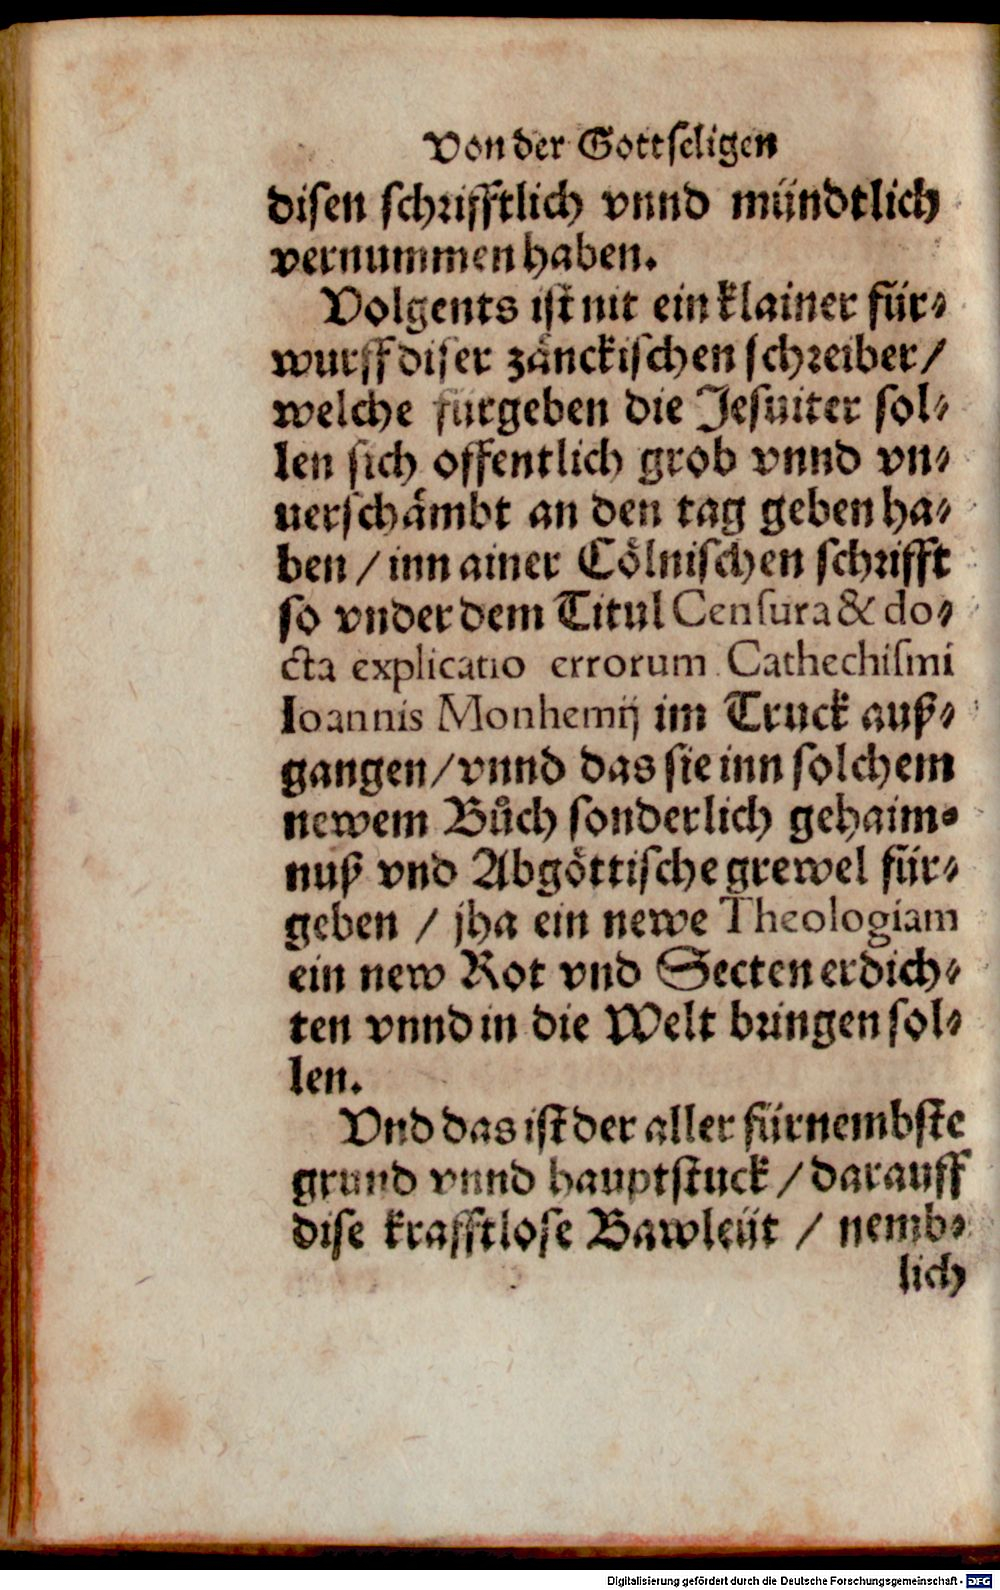 Von der Gottseligen
disen schrifftlich vnnd mündtlich
vernummen haben.
Volgents ist nit ein klainer für⸗
wurff diser zänckischen schreiber /
welche fürgeben die Jesuiter sol⸗
len sich offentlich grob vnnd vn⸗
uerschämbt an den tag geben ha⸗
ben / inn ainer Cölnischen schrifft
so vnder dem Titul Censura & do⸗
cta explicatio errorum Cathechismi
Ioannis Monhemij im Truck auß⸗
gangen / vnnd das sie inn solchem
newem Bůch sonderlich gehaim⸗
nuß vnd Abgöttische grewel für⸗
geben / jha ein newe Theologiam
ein new Rot vnd Secten erdich⸗
ten vnnd in die Welt bringen sol⸗
len.
Vnd das ist der aller fürnembste
grund vnnd hauptstuck / darauff
dise krafftlose Bawleüt / nemb⸗
lich
Digitalisierung gefördert durch die Deutsche Forschungsgemeinschaft - DFG